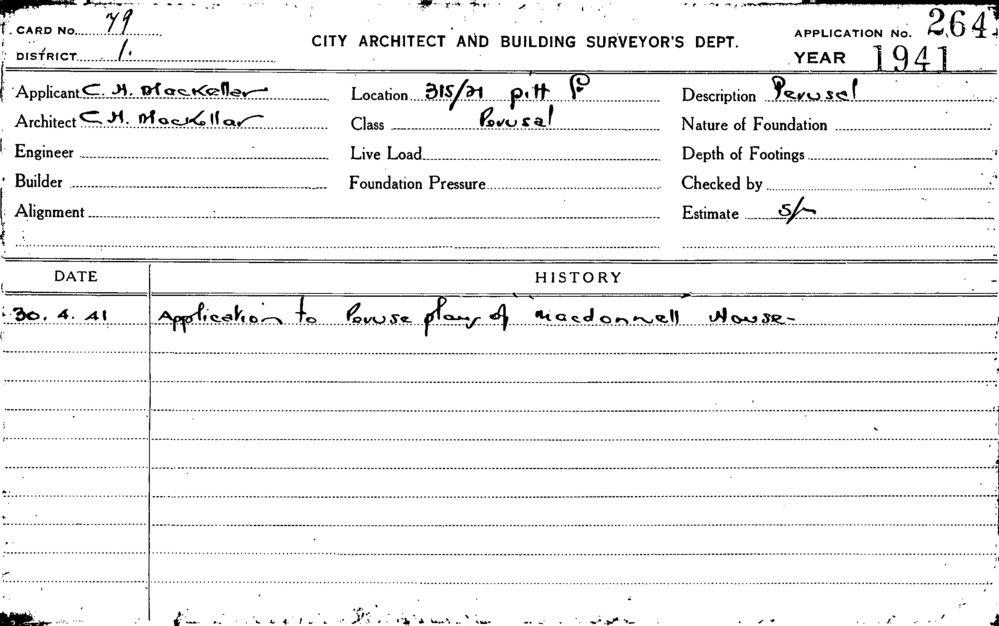 CARD No. 79
DISTRICT 1.
CITY ARCHITECT AND BUILDING SURVEYOR'S DEPT.
APPLICATION No. 264
YEAR 1941
Applicant C. H. MacKellar Location 315/21 pitt St Description Perusal
Architect C. H. MacKellar Class Perusal Nature of Foundation
Engineer Live Load Depth of Footings
Builder Foundation Pressure Checked by
Alignment Estimate 5/-
DATE HISTORY
30. 4. 41 Application to Peruse plans of Macdonnell House -